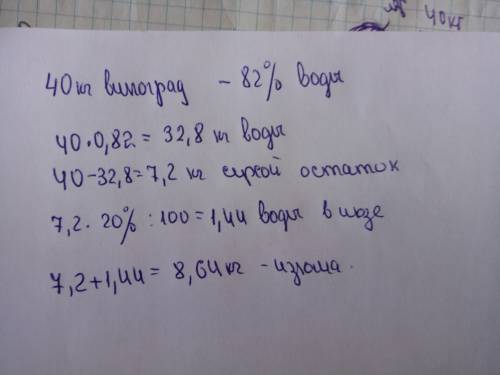 40кг
40кг виноград – 82% воды
40·0,82 = 32,8 кг воды
40-32,8=7,2 кг сухой остаток
7,2·20% :100=1,44 воды в изюме
7,2+1,44= 8,64кг -изюма.